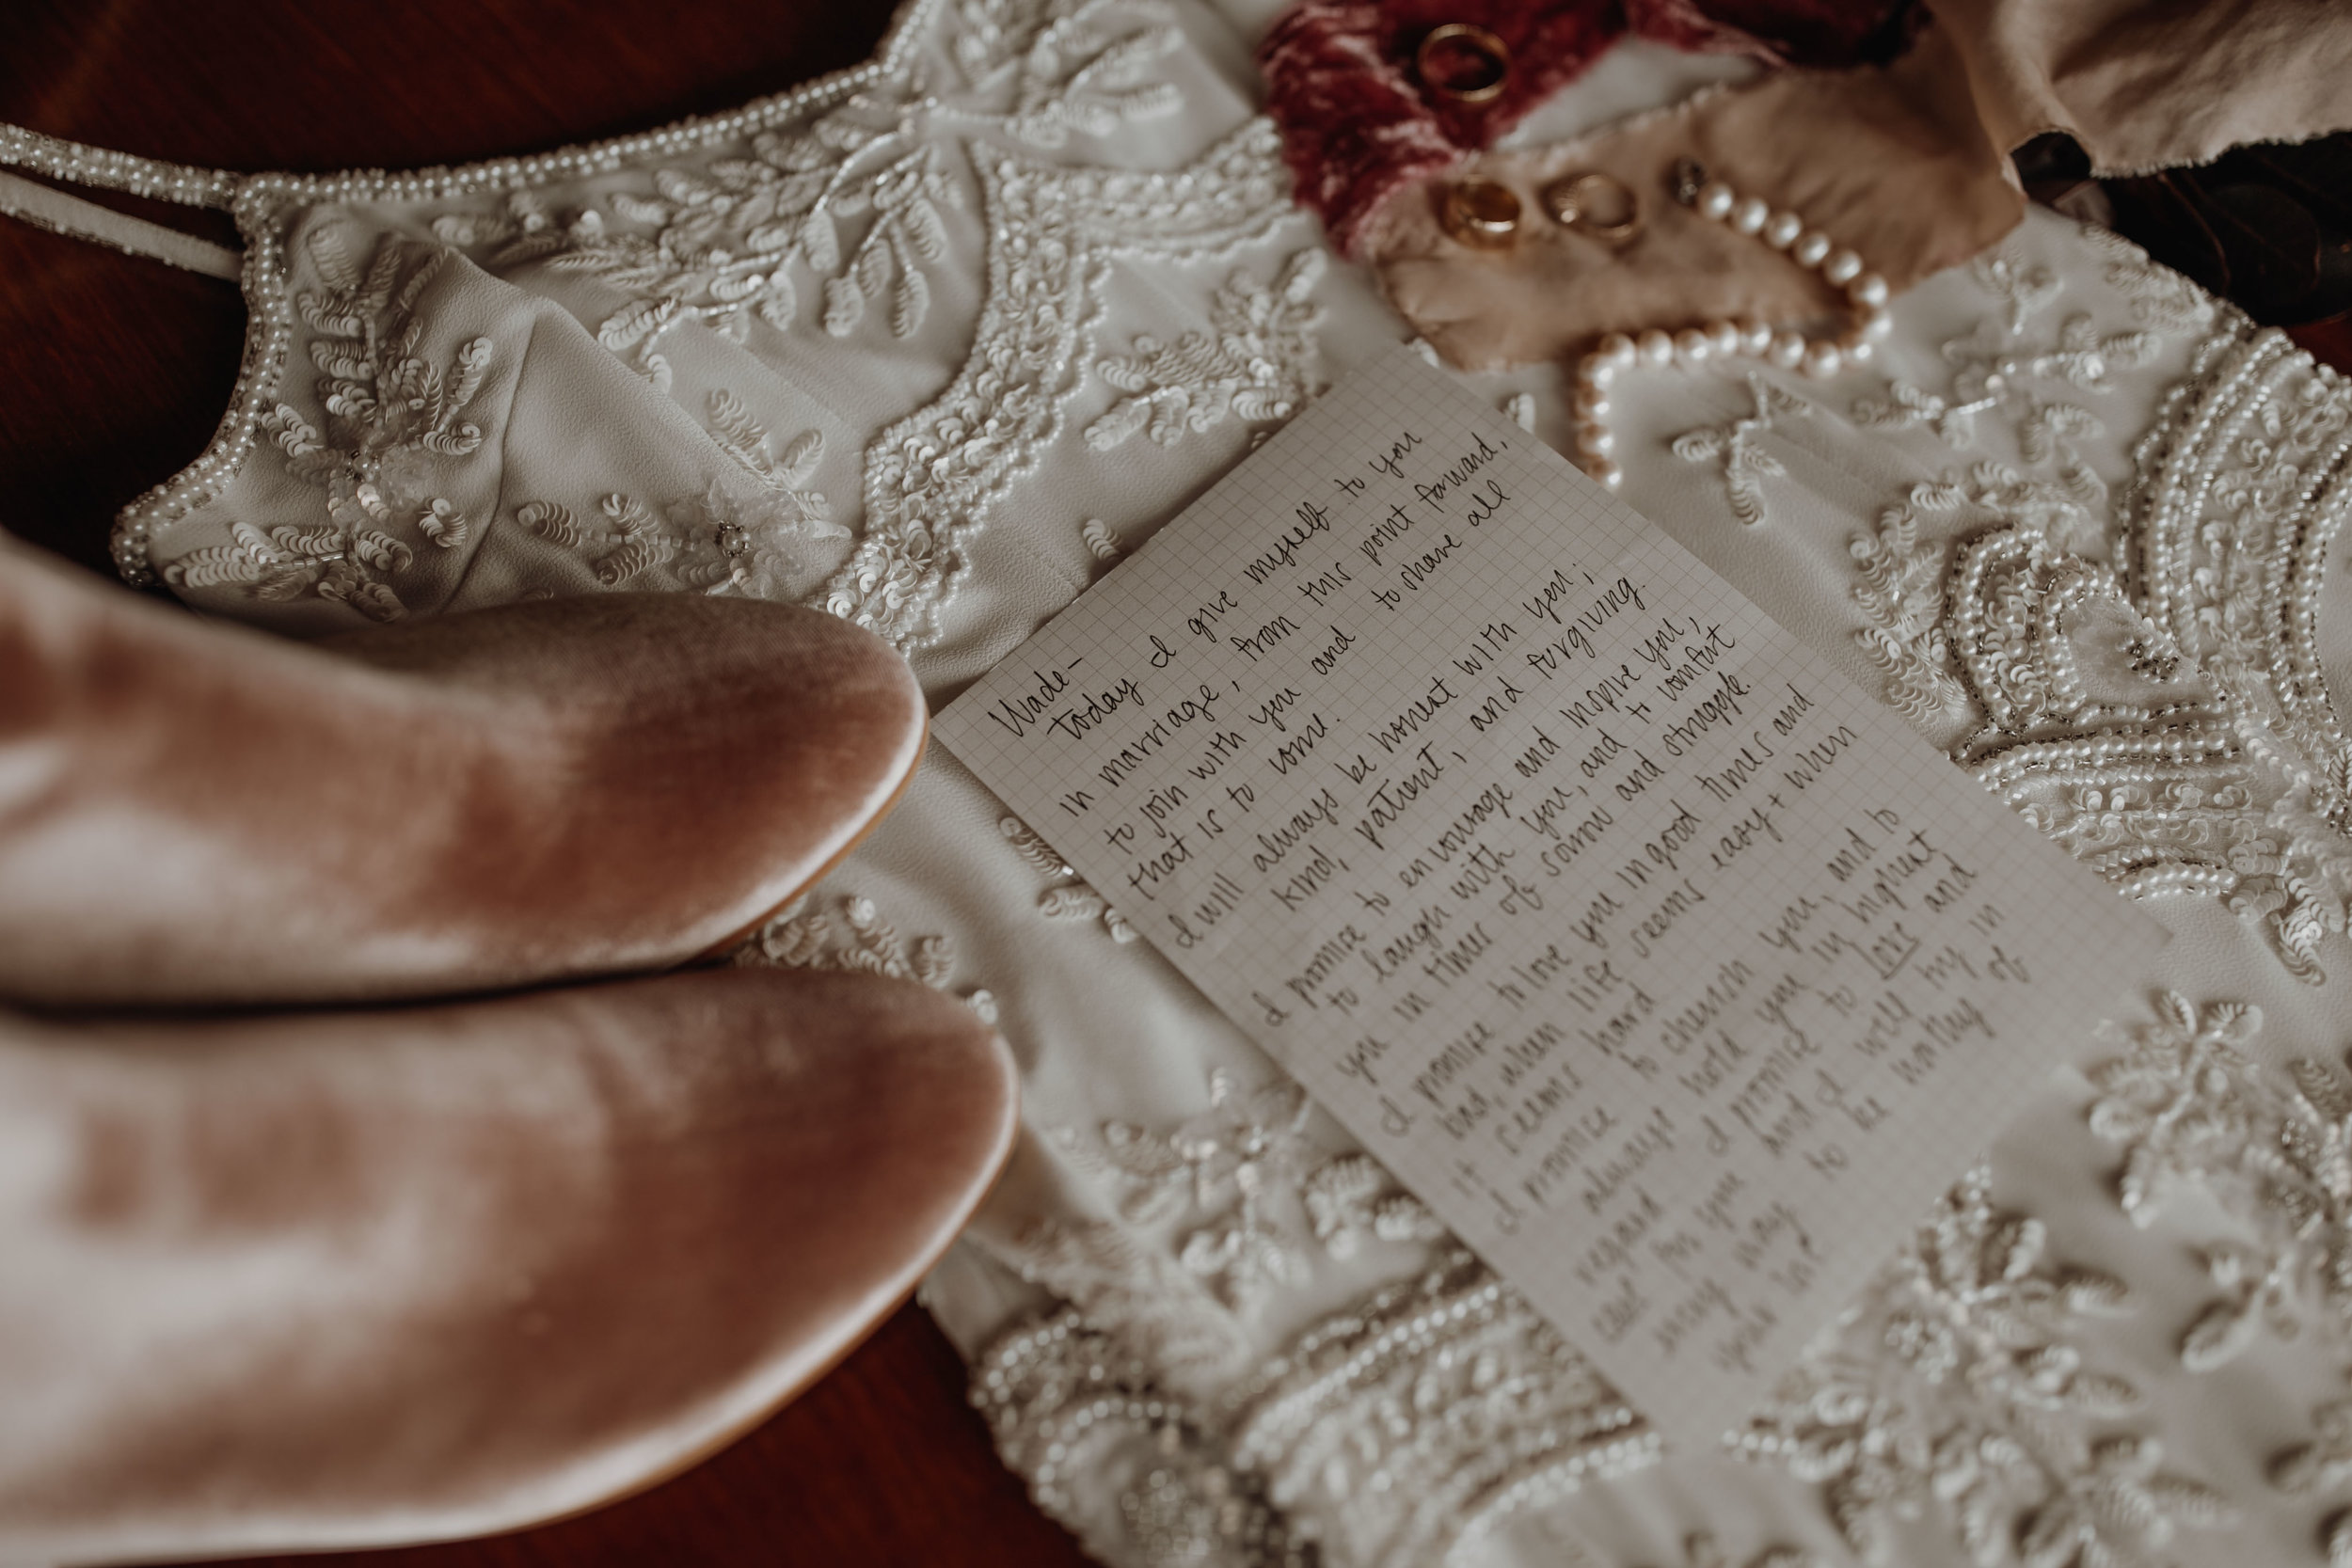 Wade-
today I give myself to you
in marriage, from this point forward,
to join with you and to share all
that is to come.
I will always be honest with you;
kind, patient, and forgiving.
I promise to encourage and inspire you,
to laugh with you, and to comfort
you in times of sorrow and struggle.
I promise to love you in good times and
bad, when life seems easy + when
it seems hard
I promise to cherish you, and to
always hold you in highest
regard. I promise to love and
for you and I will try in
every way to be worthy of
your